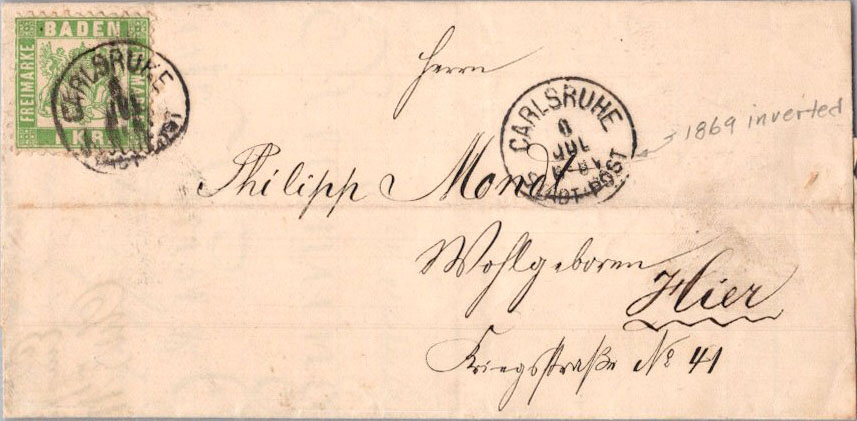 BADEN
FREIMARKE
KR
CARLSRUHE
6
JUL
STADT-POST
Herrn
CARLSRUHE
6
JUL
STADT-POST
1869 inverted
Philipp Mondt
Wohlgeboren
Hier
Kriegsstraße No 41